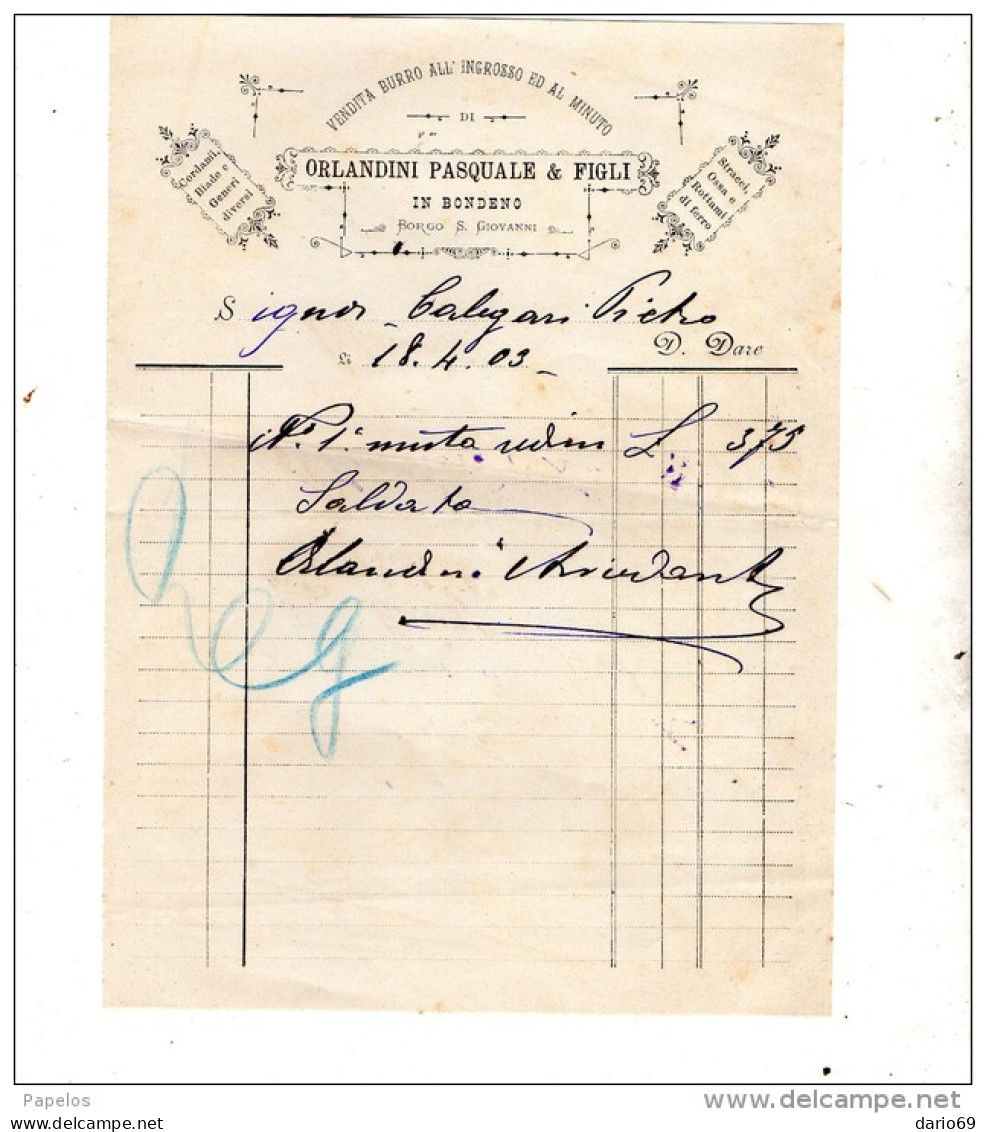 VENDITA BURRO ALL' INGROSSO ED AL MINUTO
DI
ORLANDINI PASQUALE & FIGLI
IN BONDENO
BORGO S. GIOVANNI
Cordami,
Biade e
Generi
diversi
Stracci,
Ossa e
Rottami
di ferro
Signor Calegari Pietro
li 18.4.03
D. Dare
N° 1ª muta redini L 375
Saldato
Orlandini
Papelos
www.delcampe.net
dario69